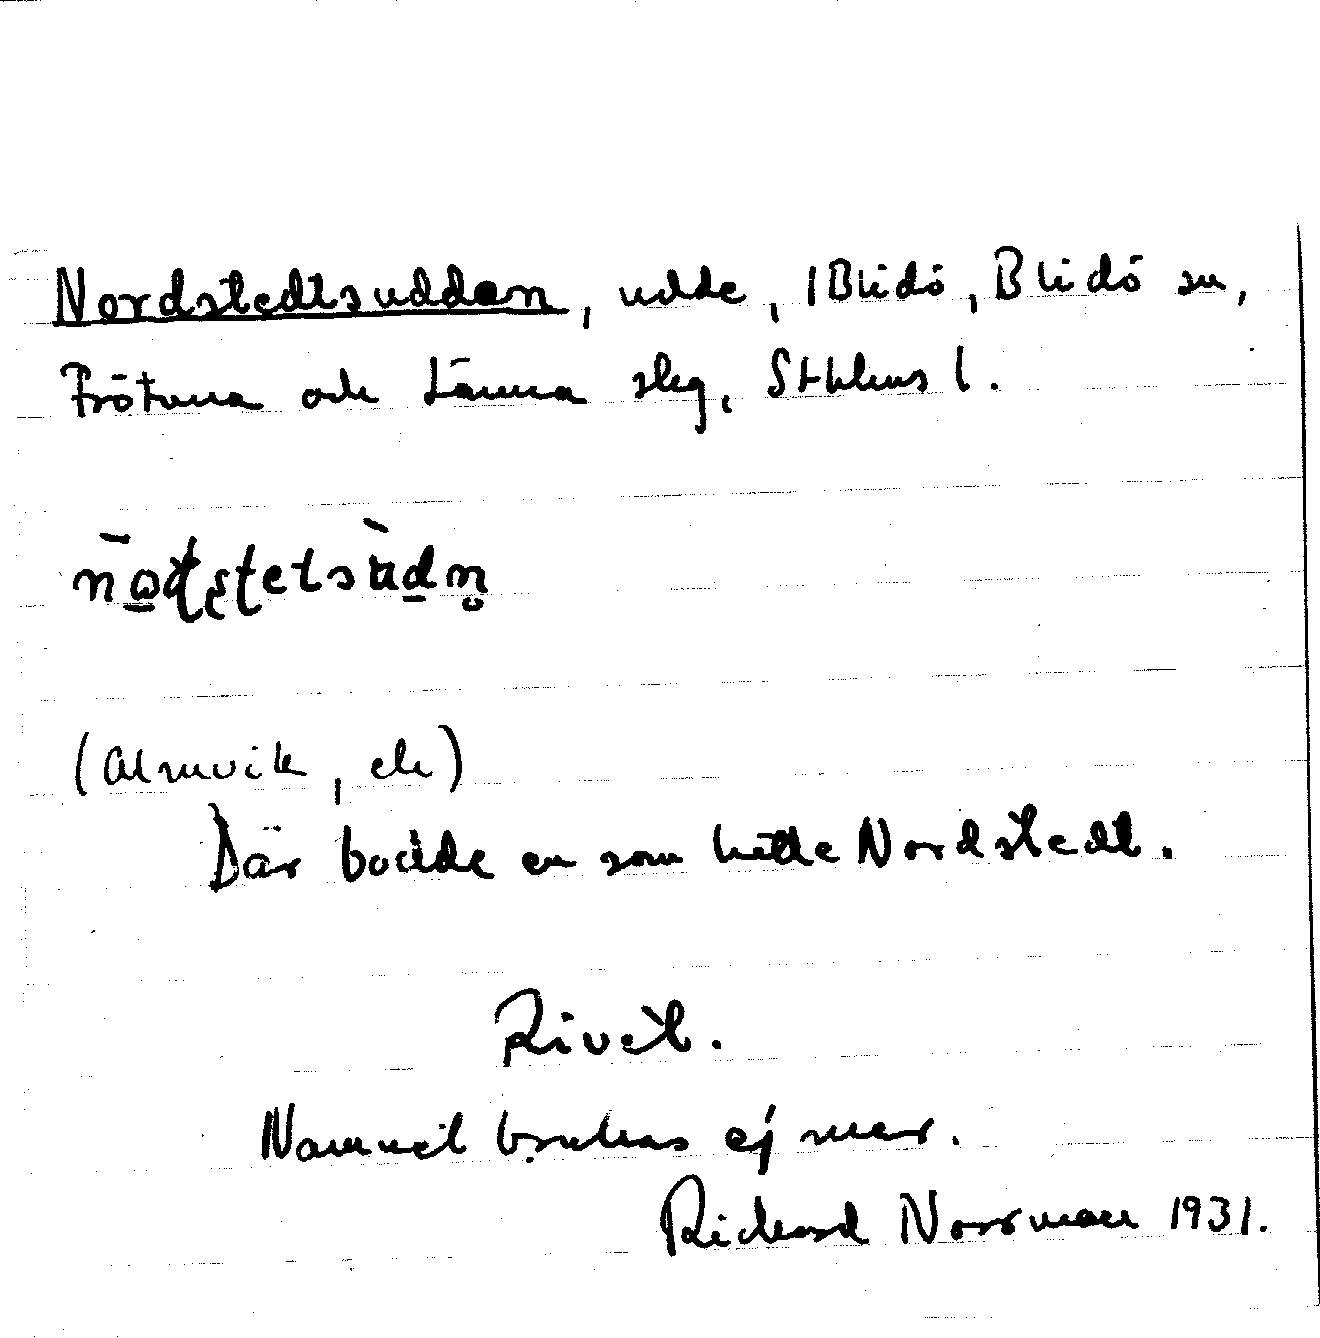 Nordstedtsudden, udde, 1 Blidö, Blidö sn,
Frötuna och Länna slg, Sthlms l.
(Almvik, ek)
Där bodde en som hette Nordstedt.
Rivet.
Namnet brukas ej mer.
Richard Norrman 1931.